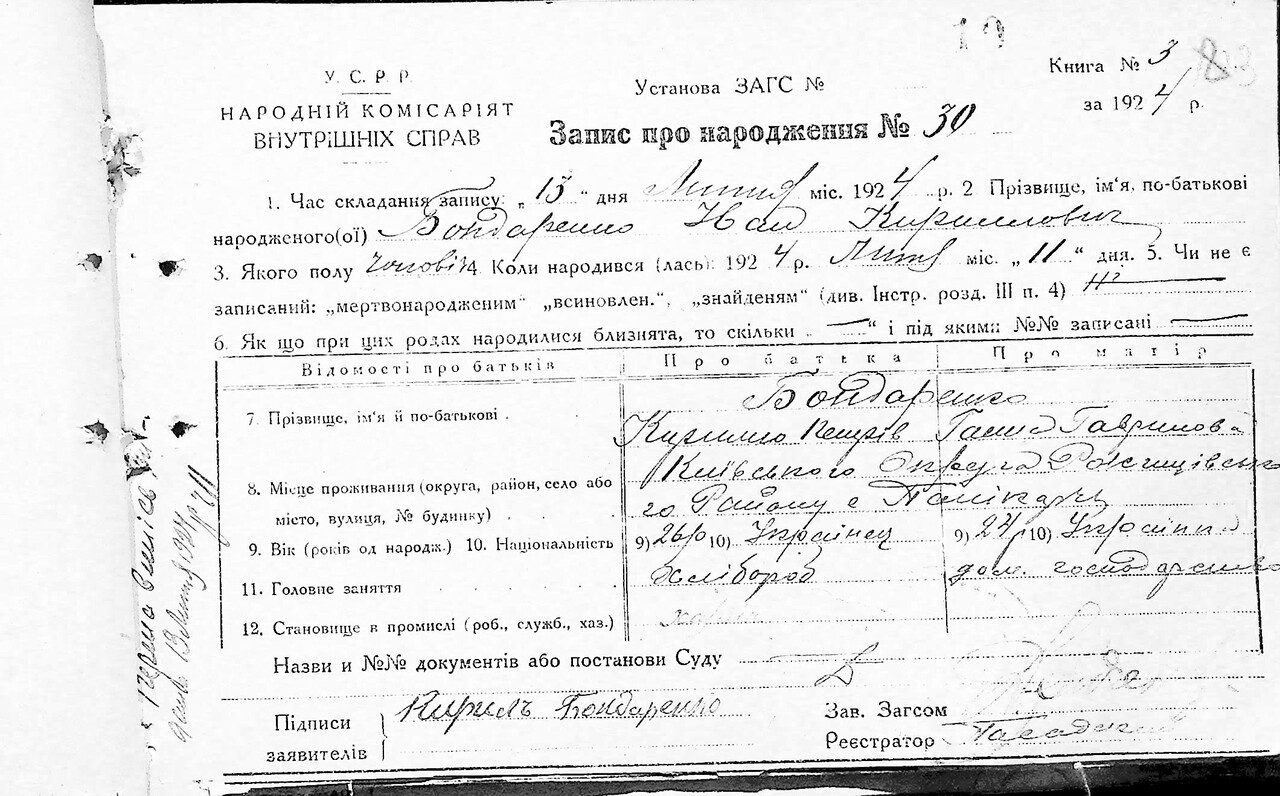 У. С. Р. Р.
НАРОДНІЙ КОМІСАРІЯТ
ВНУТРІШНІХ СПРАВ
Установа ЗАГС №
Книга № 3
за 1924 р.
Запис про народження № 30
1. Час складання запису: „ 13 “ дня Липня міс. 1924 р. 2 Прізвище, ім'я, по-батькові
народженого(ої) Бондаренко Иван Кириллович
3. Якого полу чоловіч 4. Коли народився (лась): 1924 р. Липня міс. „ 11 “ дня. 5. Чи не є
записаний: „мертвонародженим“ „всиновлен.“, „знайденям“ (див. Інстр. розд. III п. 4) ні
6. Як що при цих родах народилися близнята, то скільки „ — “ і під якими №№ записані —
Відомості про батьків Про батька Про матір
Бондаренко
7. Прізвище, ім'я й по-батькові Кирило Ганна Гаврилова
Київського Округа
8. Місце проживання (округа, район, село або го Району с
місто, вулиця, № будинку)
9. Вік (років од народж.) 10. Національність 9) 26 р 10) Українец 9) 24 10) Українка
11. Головне заняття Хлібороб дом. господарство
12. Становище в промислі (роб., служб., хаз.)
Назви и №№ документів або постанови Суду —
Підписи
заявителів
Кирилъ Бондаренко
Зав. Загсом
Реєстратор